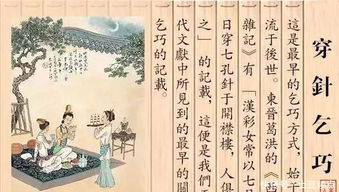 穿針乞巧
這是最早的乞巧方式，始
流于後世。東晉葛洪的《西
雜記》有「漢彩女常以七
日穿七孔針于開襟樓，人俱
之」的記載，這便是我們
代文獻中所見到的最早的關
乞巧的記載。